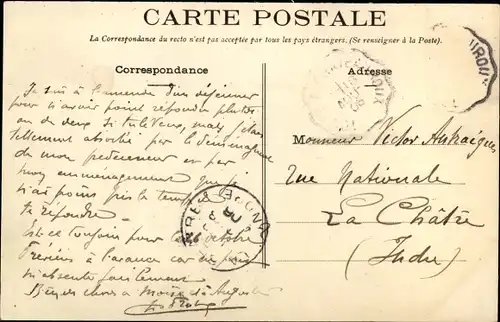 CARTE POSTALE
La Correspondance du recto n'est pas acceptée par tous les pays étrangers. (Se renseigner à la Poste).
Correspondance
Adresse
Je suis à l'amende d'un déjeuner
pour n'avoir point répondu plutôt
ou de deux si tu le veux, mais j'étais
tellement absorbé par le déménagement
de mon prédécesseur et par
mon emménagement que je
n'ai point pris le temps de
te répondre
Est-ce toujours pour octobre
Préviens à l'avance car je puis
m'absenter facilement
Monsieur Victor
rue Nationale
La Châtre
(Indre)